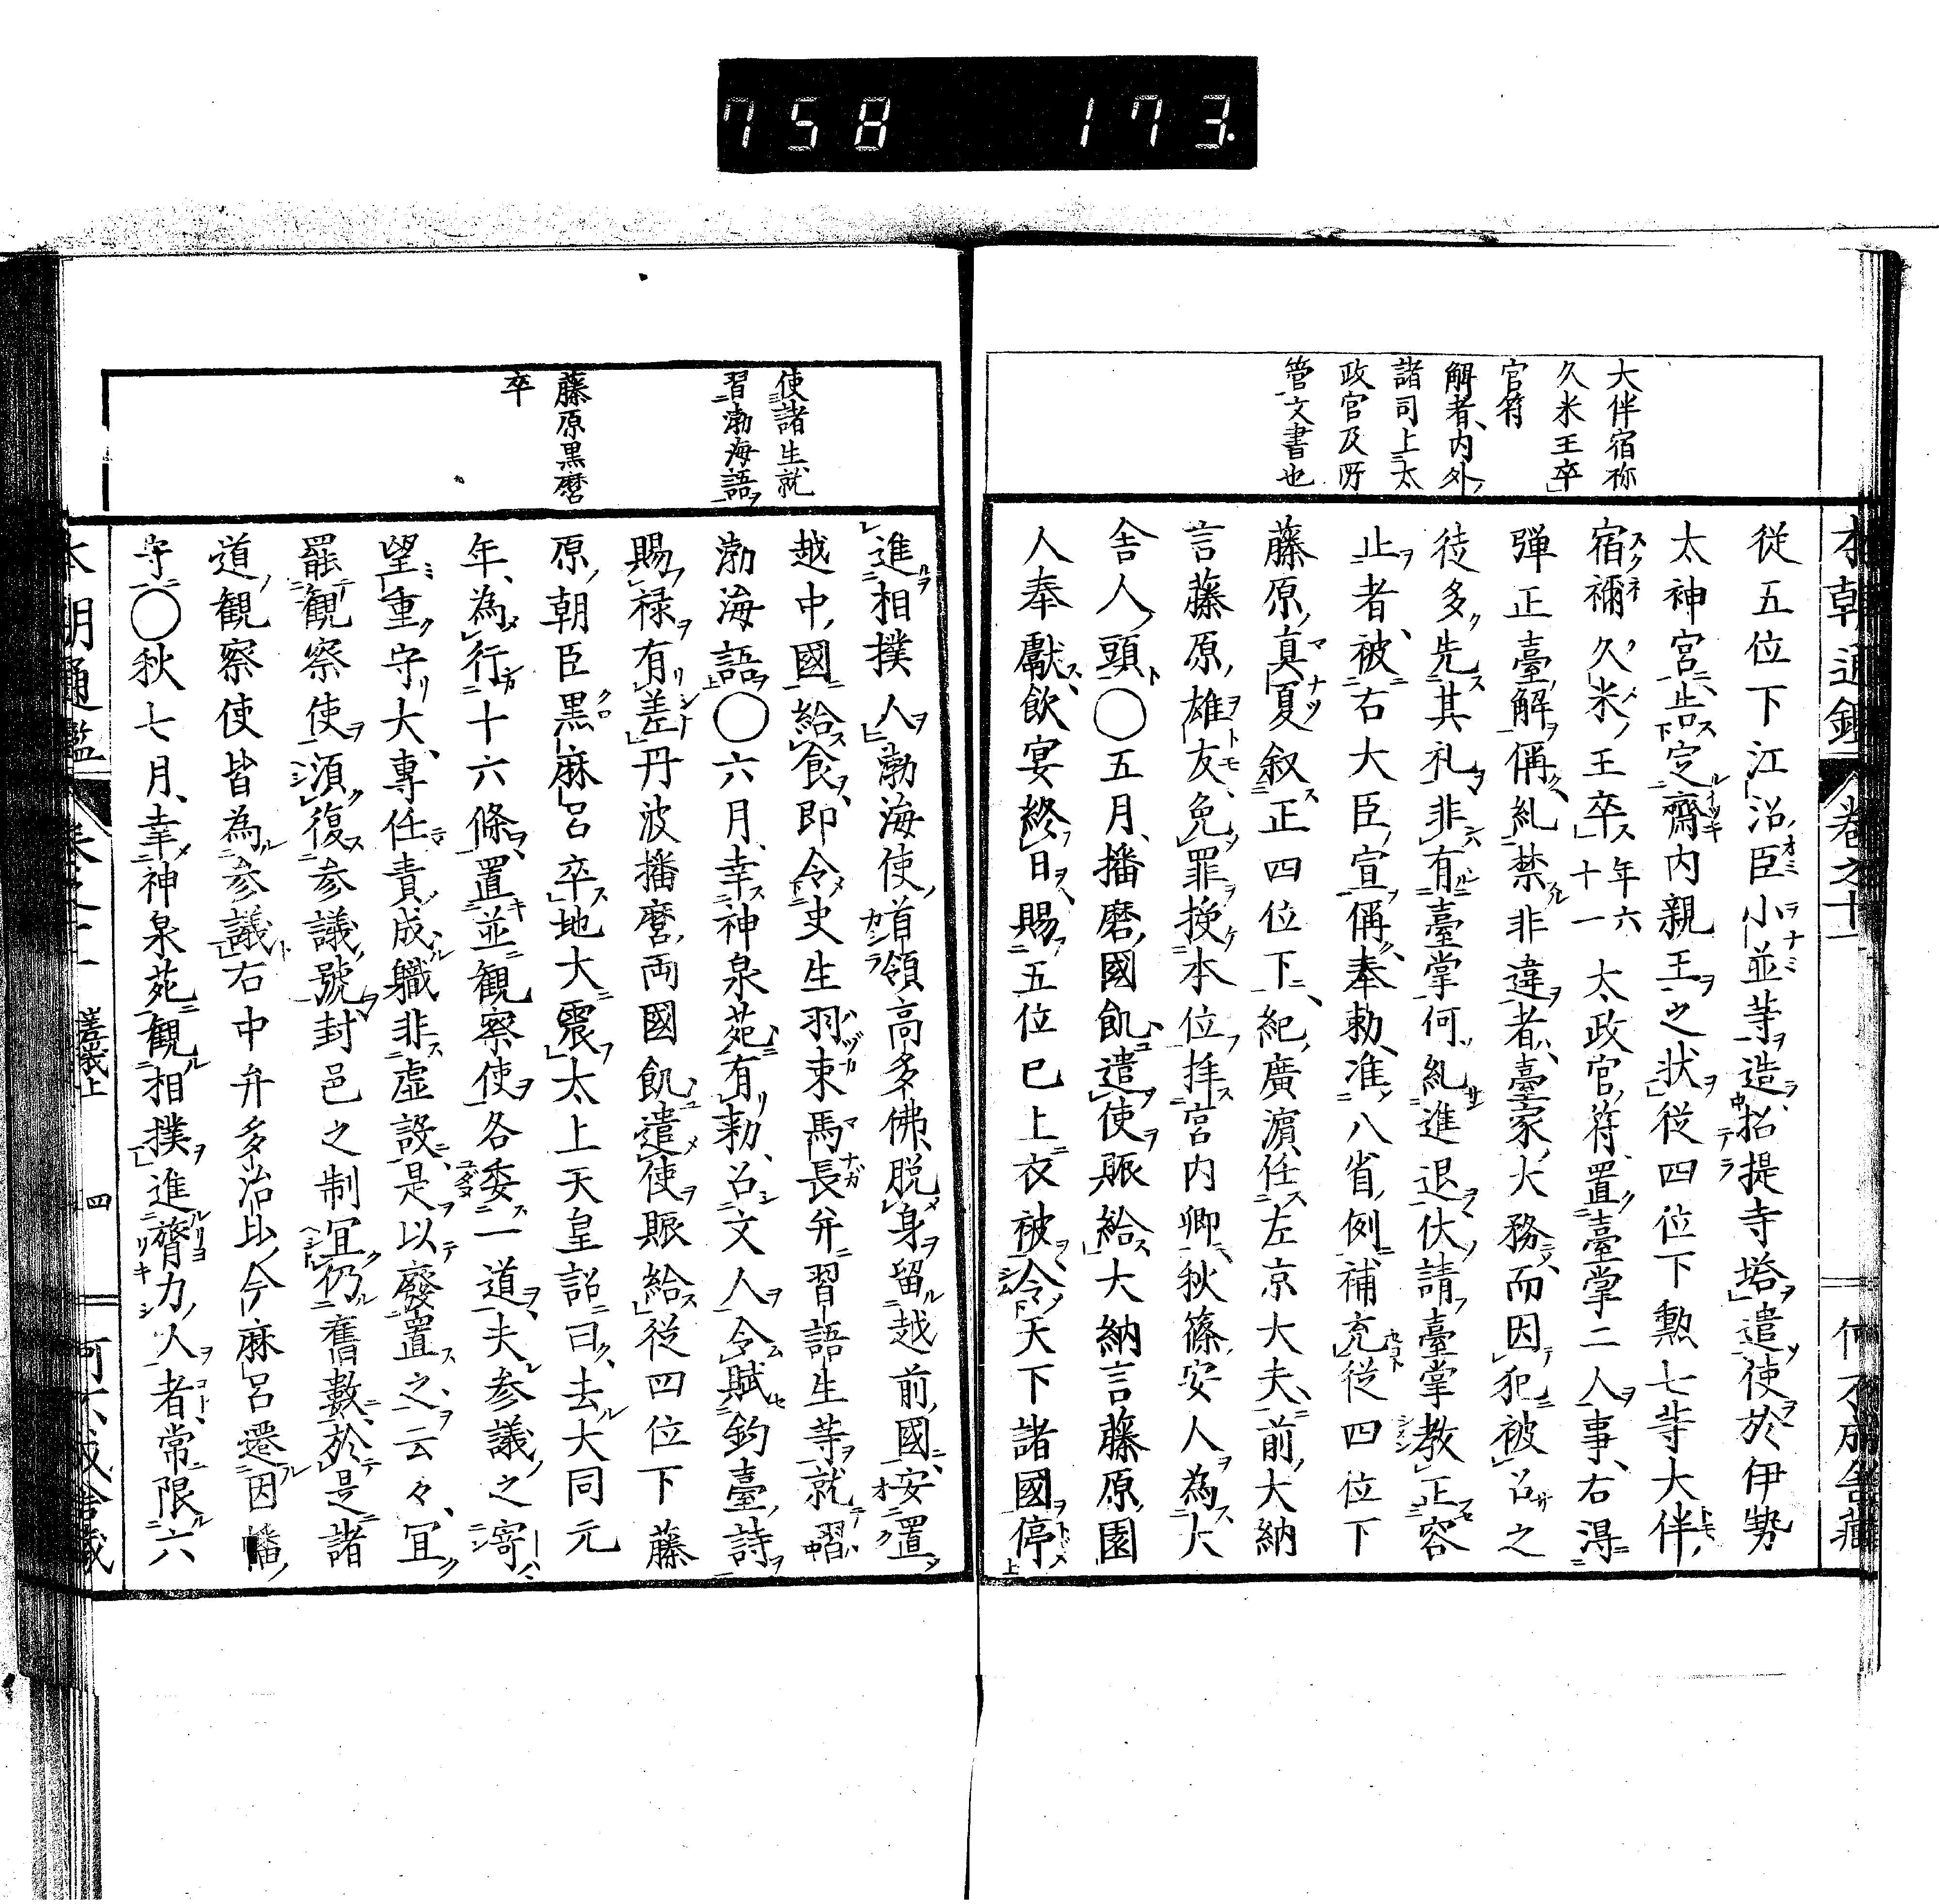 758 173.
本朝通鑑 卷之十一 何不成舎藏
大伴宿祢
久米王卒
官符
解者内外
諸司上太
政官及所
管文書也
從五位下江沼臣小並等造招提寺塔遣使於伊勢
太神宮告定齋内親王之状從四位下勲七等大伴
宿禰久米王卒年六十一太政官符置臺掌二人事右得
彈正臺解偁糺禁非違者臺家大務而因犯被召之
徒多先其礼非有臺掌何糺進退伏請臺掌教正容
止者被右大臣宣偁奉勅准八省例補充從四位下
藤原真夏叙正四位下紀廣濵任左京大夫前大納
言藤原雄友免罪授本位拝宮内卿秋篠安人為大
舎人頭〇五月播磨國飢遣使賑給大納言藤原園
人奉獻飲宴終日賜五位已上衣被令天下諸國停
使諸生就
習渤海語
藤原黒麿
卒
進相撲人渤海使首領高多佛脱身留越前國安置
越中國給食即令史生羽束馬長并習語生等就習
渤海語〇六月幸神泉苑有勅召文人令賦釣臺詩
賜禄有差丹波播麿両國飢遣使賑給從四位下藤
原朝臣黒麻呂卒地大震太上天皇詔曰去大同元
年為行十六條置並観察使各委一道夫参議之寄
望重守大專任責成職非虚設是以廢置之云々冝
罷観察使湏復参議號封邑之制冝仍舊數於是諸
道観察使皆為参議右中弁多治比今麻呂遷因幡
守〇秋七月幸神泉苑観相撲進膂力人者常限六
本朝通鑑 嵯峨上 四